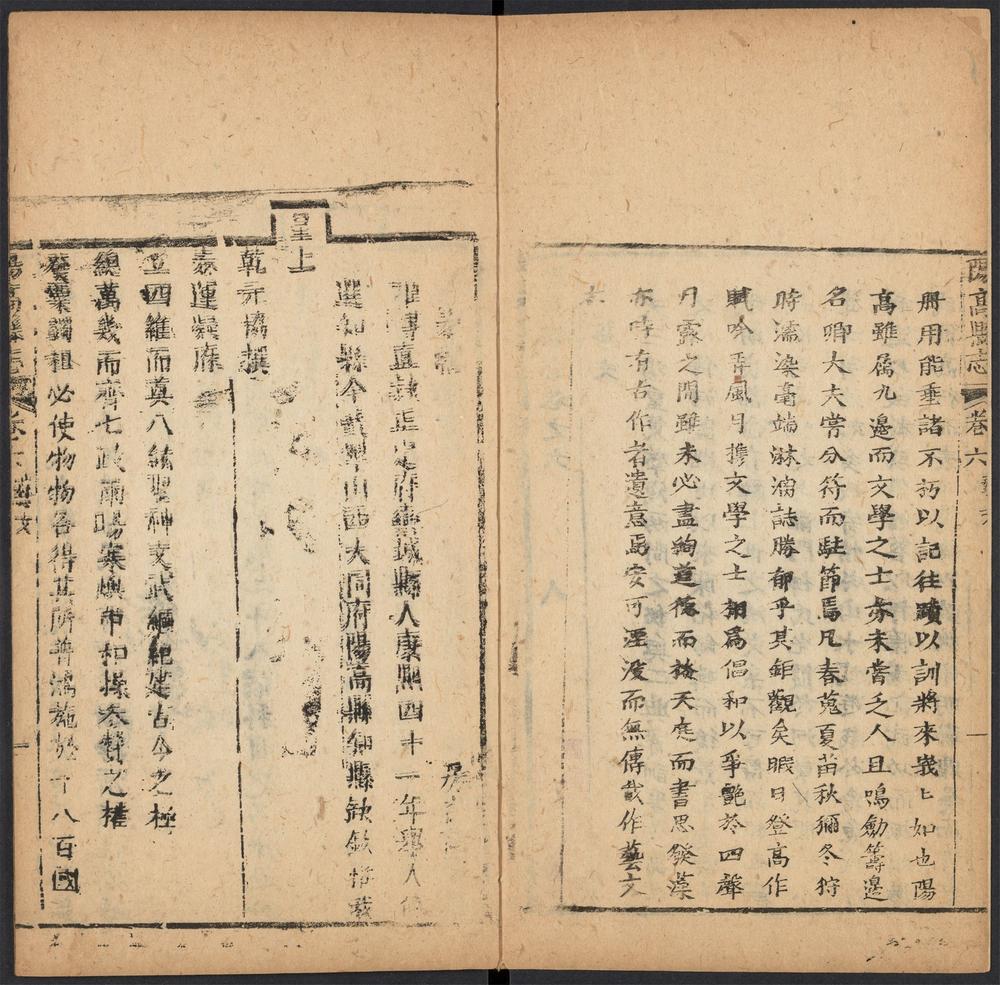 陽高縣志 卷六 藝文 一
冊用能垂諸不朽以記往蹟以訓將來峩匕如也陽
高雖屬九邊而文學之士亦未嘗乏人且鳴勳籌邊
名卿大夫嘗分符而駐節焉凡春蒐夏苗秋獮冬狩
時濡染毫端淋漓誌勝郁乎其鉅觀矣暇日登高作
賦吟弄風月攜文學之士相為倡和以爭艷於四聲
月露之間雖未必盡絢道德而掞天庭而書思錢藻
亦時有古作者遺意焉安可湮没而無傳哉作藝文
直隸正定府欒城縣人康熙四十一年舉人
選知縣今授山西大同府陽高縣知縣
皇上
乾元協撰
泰運凝庥
立四維而奠八紘聖神文武綱紀建古今之極
總萬幾而齊七政雨暘寒燠中和操參贊之權
必使物物各得其所普鴻施於千八百國
陽高縣志 卷六 藝文 一